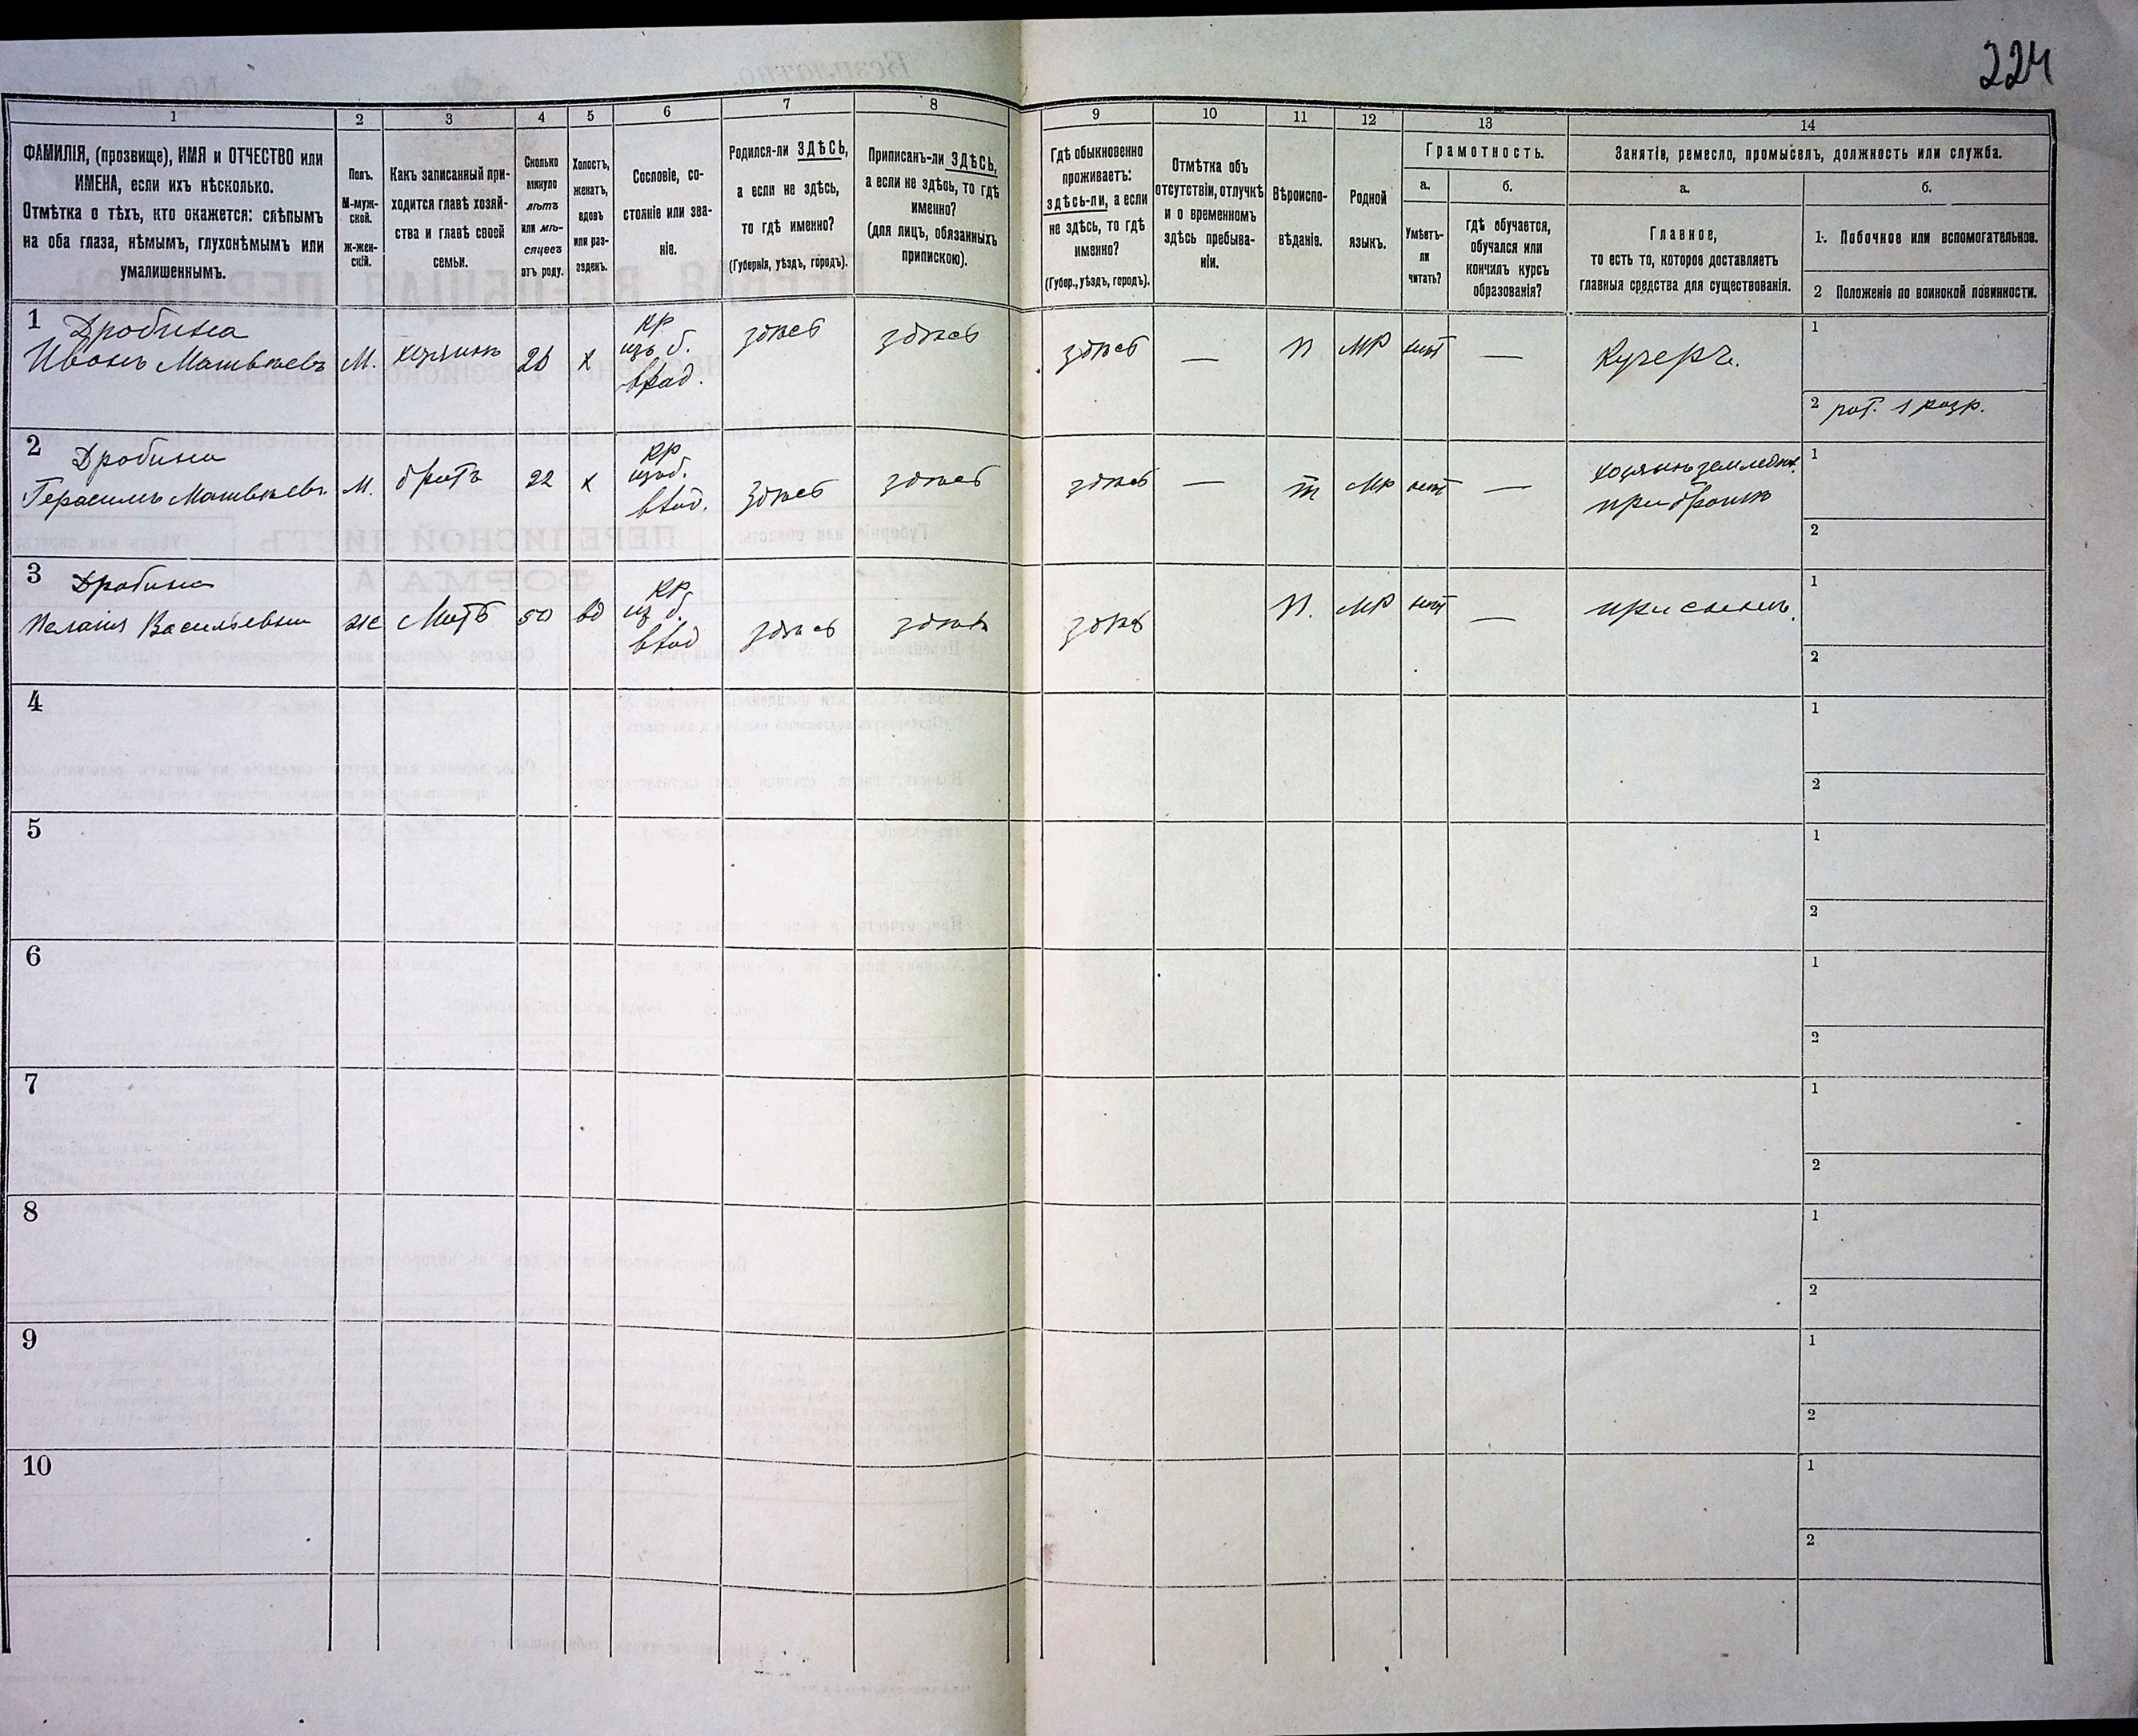 224
1 2 3 4 5 6 7 8 9 10 11 12 13 14
ФАМИЛІЯ, (прозвище), ИМЯ и ОТЧЕСТВО или
ИМЕНА, если ихъ нѣсколько.
Отмѣтка о тѣхъ, кто окажется: слѣпымъ
на оба глаза, нѣмымъ, глухонѣмымъ или
умалишеннымъ.
Полъ.
М-муж-
ской.
Ж-жен-
скій.
Какъ записанный при-
ходится главѣ хозяй-
ства и главѣ своей
семьи.
Сколько
минуло
лѣтъ
или мѣ-
сяцевъ
отъ роду.
Холостъ,
женатъ,
вдовъ
или раз-
веденъ.
Сословіе, со-
стояніе или зва-
ніе.
Родился-ли ЗДѢСЬ,
а если не здѣсь,
то гдѣ именно?
(Губернія, уѣздъ, городъ).
Приписанъ-ли ЗДѢСЬ,
а если не здѣсь, то гдѣ
именно?
(для лицъ, обязанныхъ
припискою).
Гдѣ обыкновенно
проживаетъ:
здѣсь-ли, а если
не здѣсь, то гдѣ
именно?
(Губер., уѣздъ, городъ).
Отмѣтка объ
отсутствіи, отлучкѣ
и о временномъ
здѣсь пребыва-
ніи.
Вѣроиспо-
вѣданіе.
Родной
языкъ.
Грамотность.
а.
Умѣетъ-
ли
читать?
б.
Гдѣ обучается,
обучался или
кончилъ курсъ
образованія?
Занятіе, ремесло, промыселъ, должность или служба.
а.
Главное,
то есть то, которое доставляетъ
главныя средства для существованія.
б.
1. Побочное или вспомогательное.
2 Положеніе по воинской повинности.
1 Дробина
Иванъ Матвѣевъ М. хозяинъ х
кр
изъ б.
влад.
здѣсь здѣсь здѣсь — п мр нѣт — Кучеръ.
1
2 рат. 1 разр.
2 Дробина
Герасимъ Матвѣевъ М. братъ 22 х
кр
из б.
влад.
здѣсь здѣсь здѣсь — мр нѣт —
хозяинъ земледѣл.
при братѣ
1
2
3 Дробина
Пелагія Васильевна же Мать 50 вд
кр
из б.
влад
здѣсь здѣсь здѣсь п. мр нѣт — при сынѣ.
1
2
4
1
2
5
1
2
6
1
2
7
1
2
8
1
2
9
1
2
10
1
2